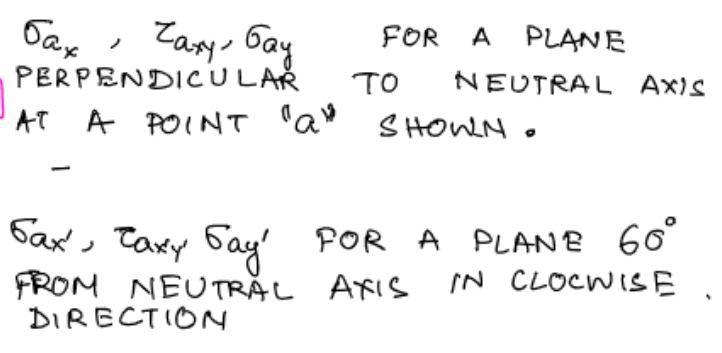 σax , τaxy, σay FOR A PLANE
PERPENDICULAR TO NEUTRAL AXIS
AT A POINT "a" SHOWN .
-
σax', τaxy' σay' FOR A PLANE 60°
FROM NEUTRAL AXIS IN CLOCWISE .
DIRECTION